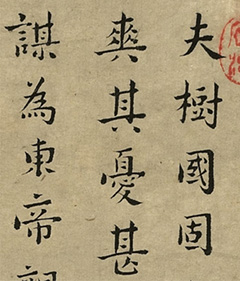 夫樹國固
爽其憂甚
謀為東帝親